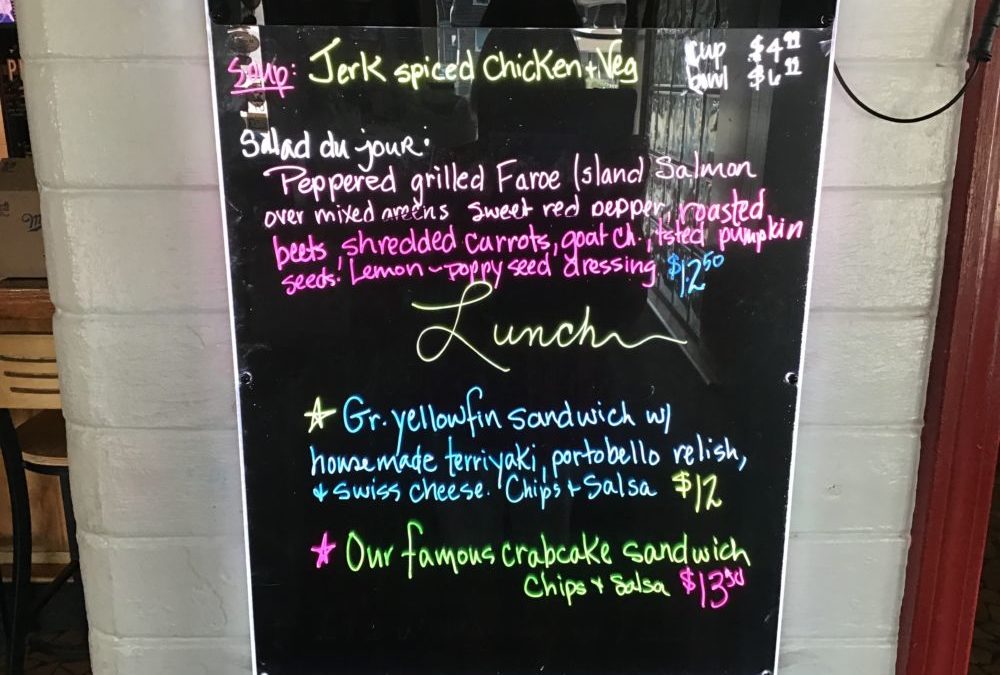 Soup: Jerk spiced chicken + Veg cup $4.99
bowl $6.99
Salad du jour:
Peppered grilled Faroe Island Salmon
over mixed greens sweet red pepper, roasted
beets, shredded carrots, goat ch., tsted pumpkin
seeds. Lemon-poppy seed dressing $12.50
Lunch
Gr. yellowfin sandwich w/
housemade terriyaki, portobello relish,
+ swiss cheese. Chips + Salsa $12
Our famous crabcake sandwich
Chips + Salsa $13.50